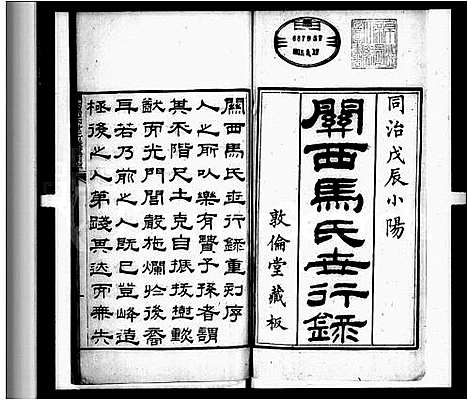 同治戊辰小陽
關西馬氏世行錄
敦倫堂藏板
關西馬氏世行錄重刻序
人之所以樂有賢子孫者謂
其不階尺土克自振拔樹懿
猷而光門閭嚴施爛於後裔
耳若乃前之人既已登峰造
極後之人第踐其迹而無失